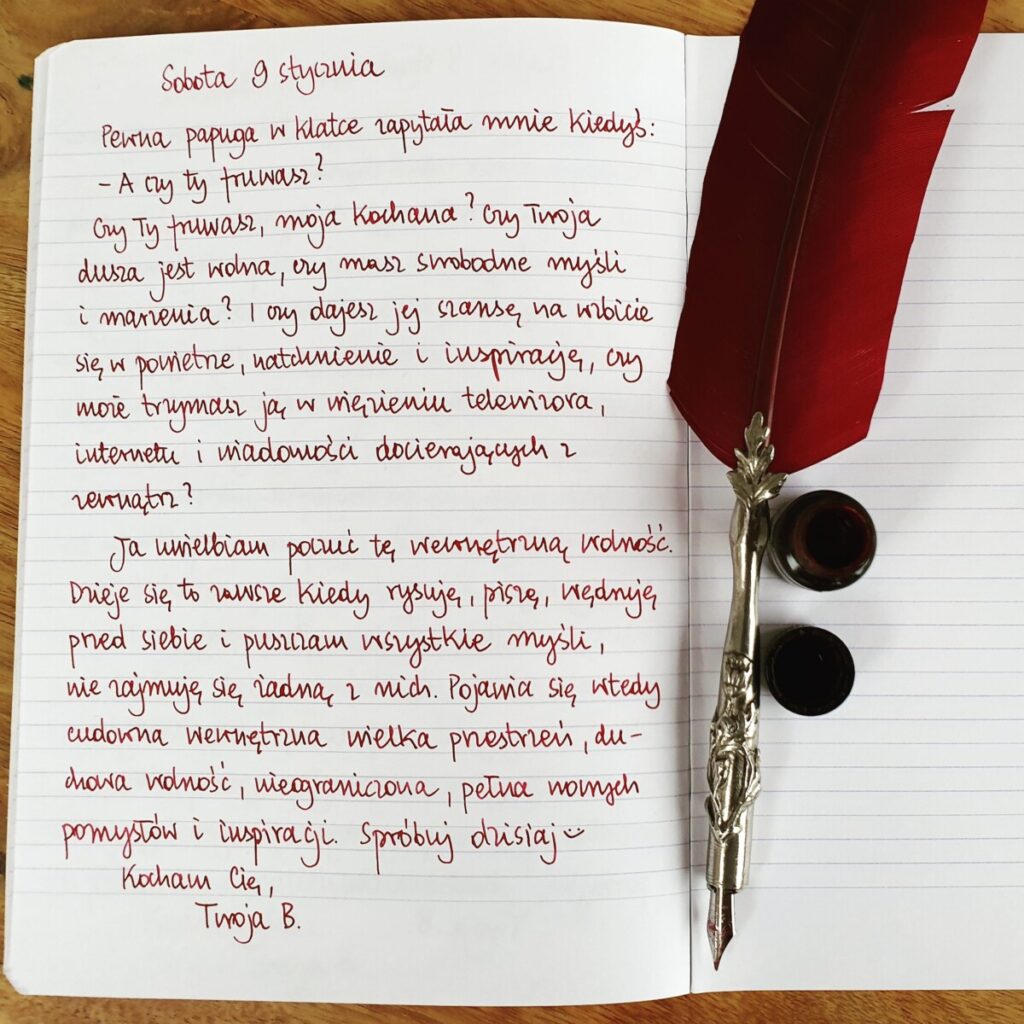 Sobota 9 stycznia
Pewna papuga w klatce zapytała mnie kiedyś:
- A czy ty fruwasz?
Czy Ty fruwasz, moja kochana? Czy Twoja
dusza jest wolna, czy masz swobodne myśli
i marzenia? I czy dajesz jej szansę na wzbicie
się w powietrze, natchnienie i inspirację, czy
może trzymasz ją w więzieniu telewizora,
internetu i wiadomości docierających z
zewnątrz?
Ja uwielbiam poczuć tę wewnętrzną wolność.
Dzieje się to zawsze kiedy rysuję, piszę, wędruję
przed siebie i puszczam wszystkie myśli,
nie zajmuję się żadną z nich. Pojawia się wtedy
cudowna wewnętrzna wielka przestrzeń, du-
chowa wolność, nieograniczona, pełna nowych
pomysłów i inspiracji. Spróbuj dzisiaj
Kocham Cię,
Twoja B.